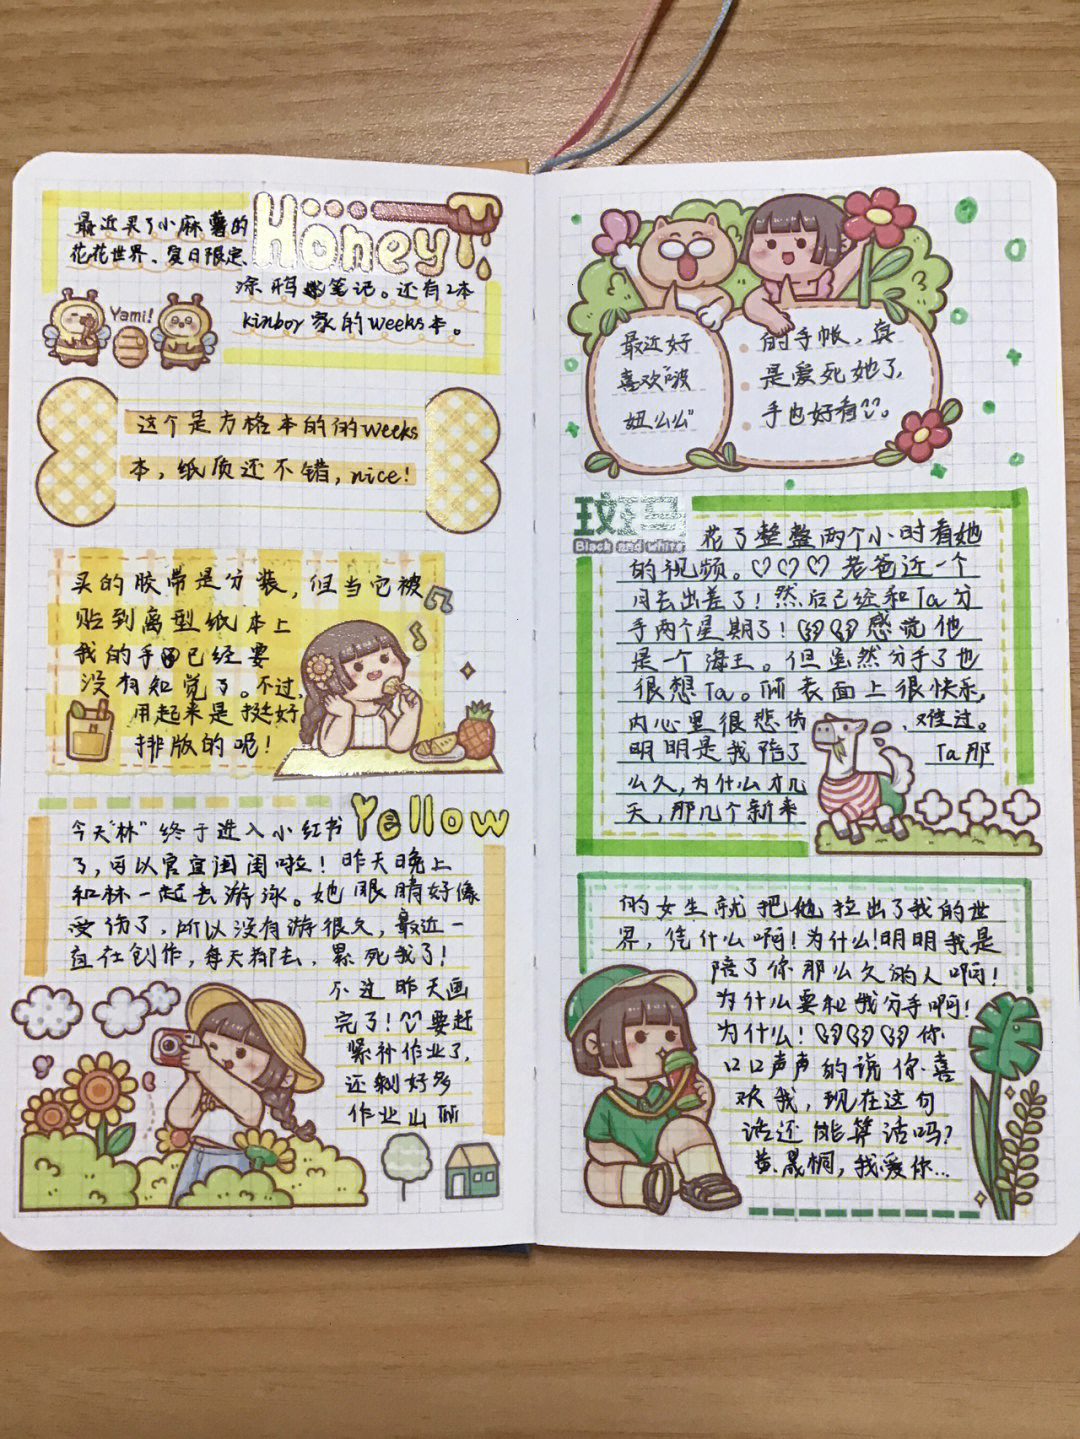 最近买了小麻薯的
Honey
花花世界、夏日限定、
涂鸦笔记。还有2本
kinbor家的weeks本。
Yami!
这个是方格本的的weeks
本，纸质还不错，nice!
买的胶带是分装，但当它被
贴到离型纸本上
我的手已经要
没有知觉了。不过，
用起来是挺好
排版的呢！
Yellow
今天"林"终于进入小红书
了，可以官宣闺闺啦！昨天晚上
和林一起去游泳。她眼睛好像
受伤了，所以没有游很久，最近一
直在创作，每天都去，累死我了！
不过昨天画
完了！要赶
紧补作业了，
还剩好多
作业
最近好
喜欢"波
妞么么"
的手帐，真
是爱死她了，
手也好看。
Black and white
花了整整两个小时看她
的视频。♡♡♡老爸近一个
月去出差了！然后已经和Ta分
手两个星期了！感觉他
是一个海王。但虽然分手了也
很想Ta。表面上很快乐，
内心里很悲伤、难过。
明明是我陪了Ta那
么久，为什么才几
天，那几个新来
的女生就把他拉出了我的世
界，凭什么啊！为什么！明明我是
陪了你那么久的人啊！
为什么要和我分手啊！
为什么！你
口口声声的说你喜
欢我，现在这句
话还能算话吗？
黄晟桐，我爱你...